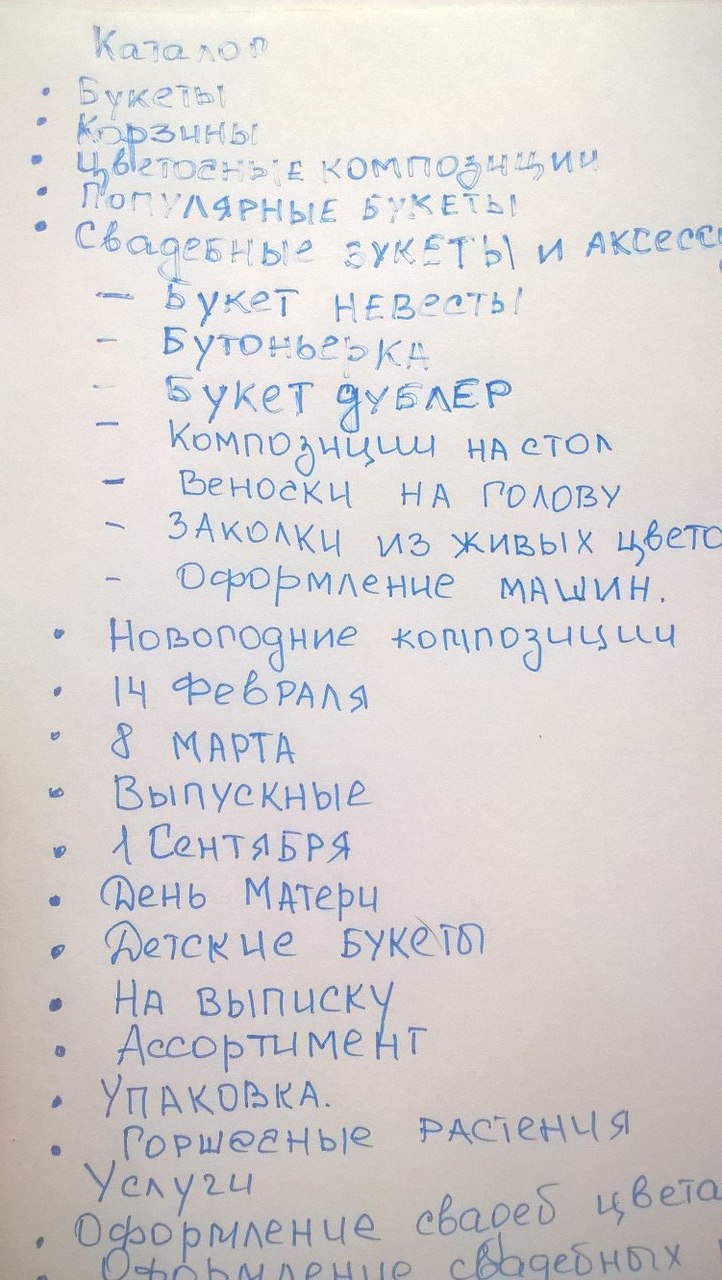 Каталог
• Букеты
• Корзины
• Цветочные композиции
• Популярные букеты
• Свадебные букеты и аксесс
– Букет невесты
– Бутоньерка
– Букет дублер
– Композиции на стол
– Веночки на голову
– Заколки из живых цвето
– Оформление машин.
• Новогодние композиции
• 14 Февраля
• 8 Марта
• Выпускные
• 1 Сентября
• День Матери
• Детские букеты
• На выписку
• Ассортимент
• Упаковка.
• Горшечные растения
Услуги
• Оформление свадеб цвета
• Оформление свадебных